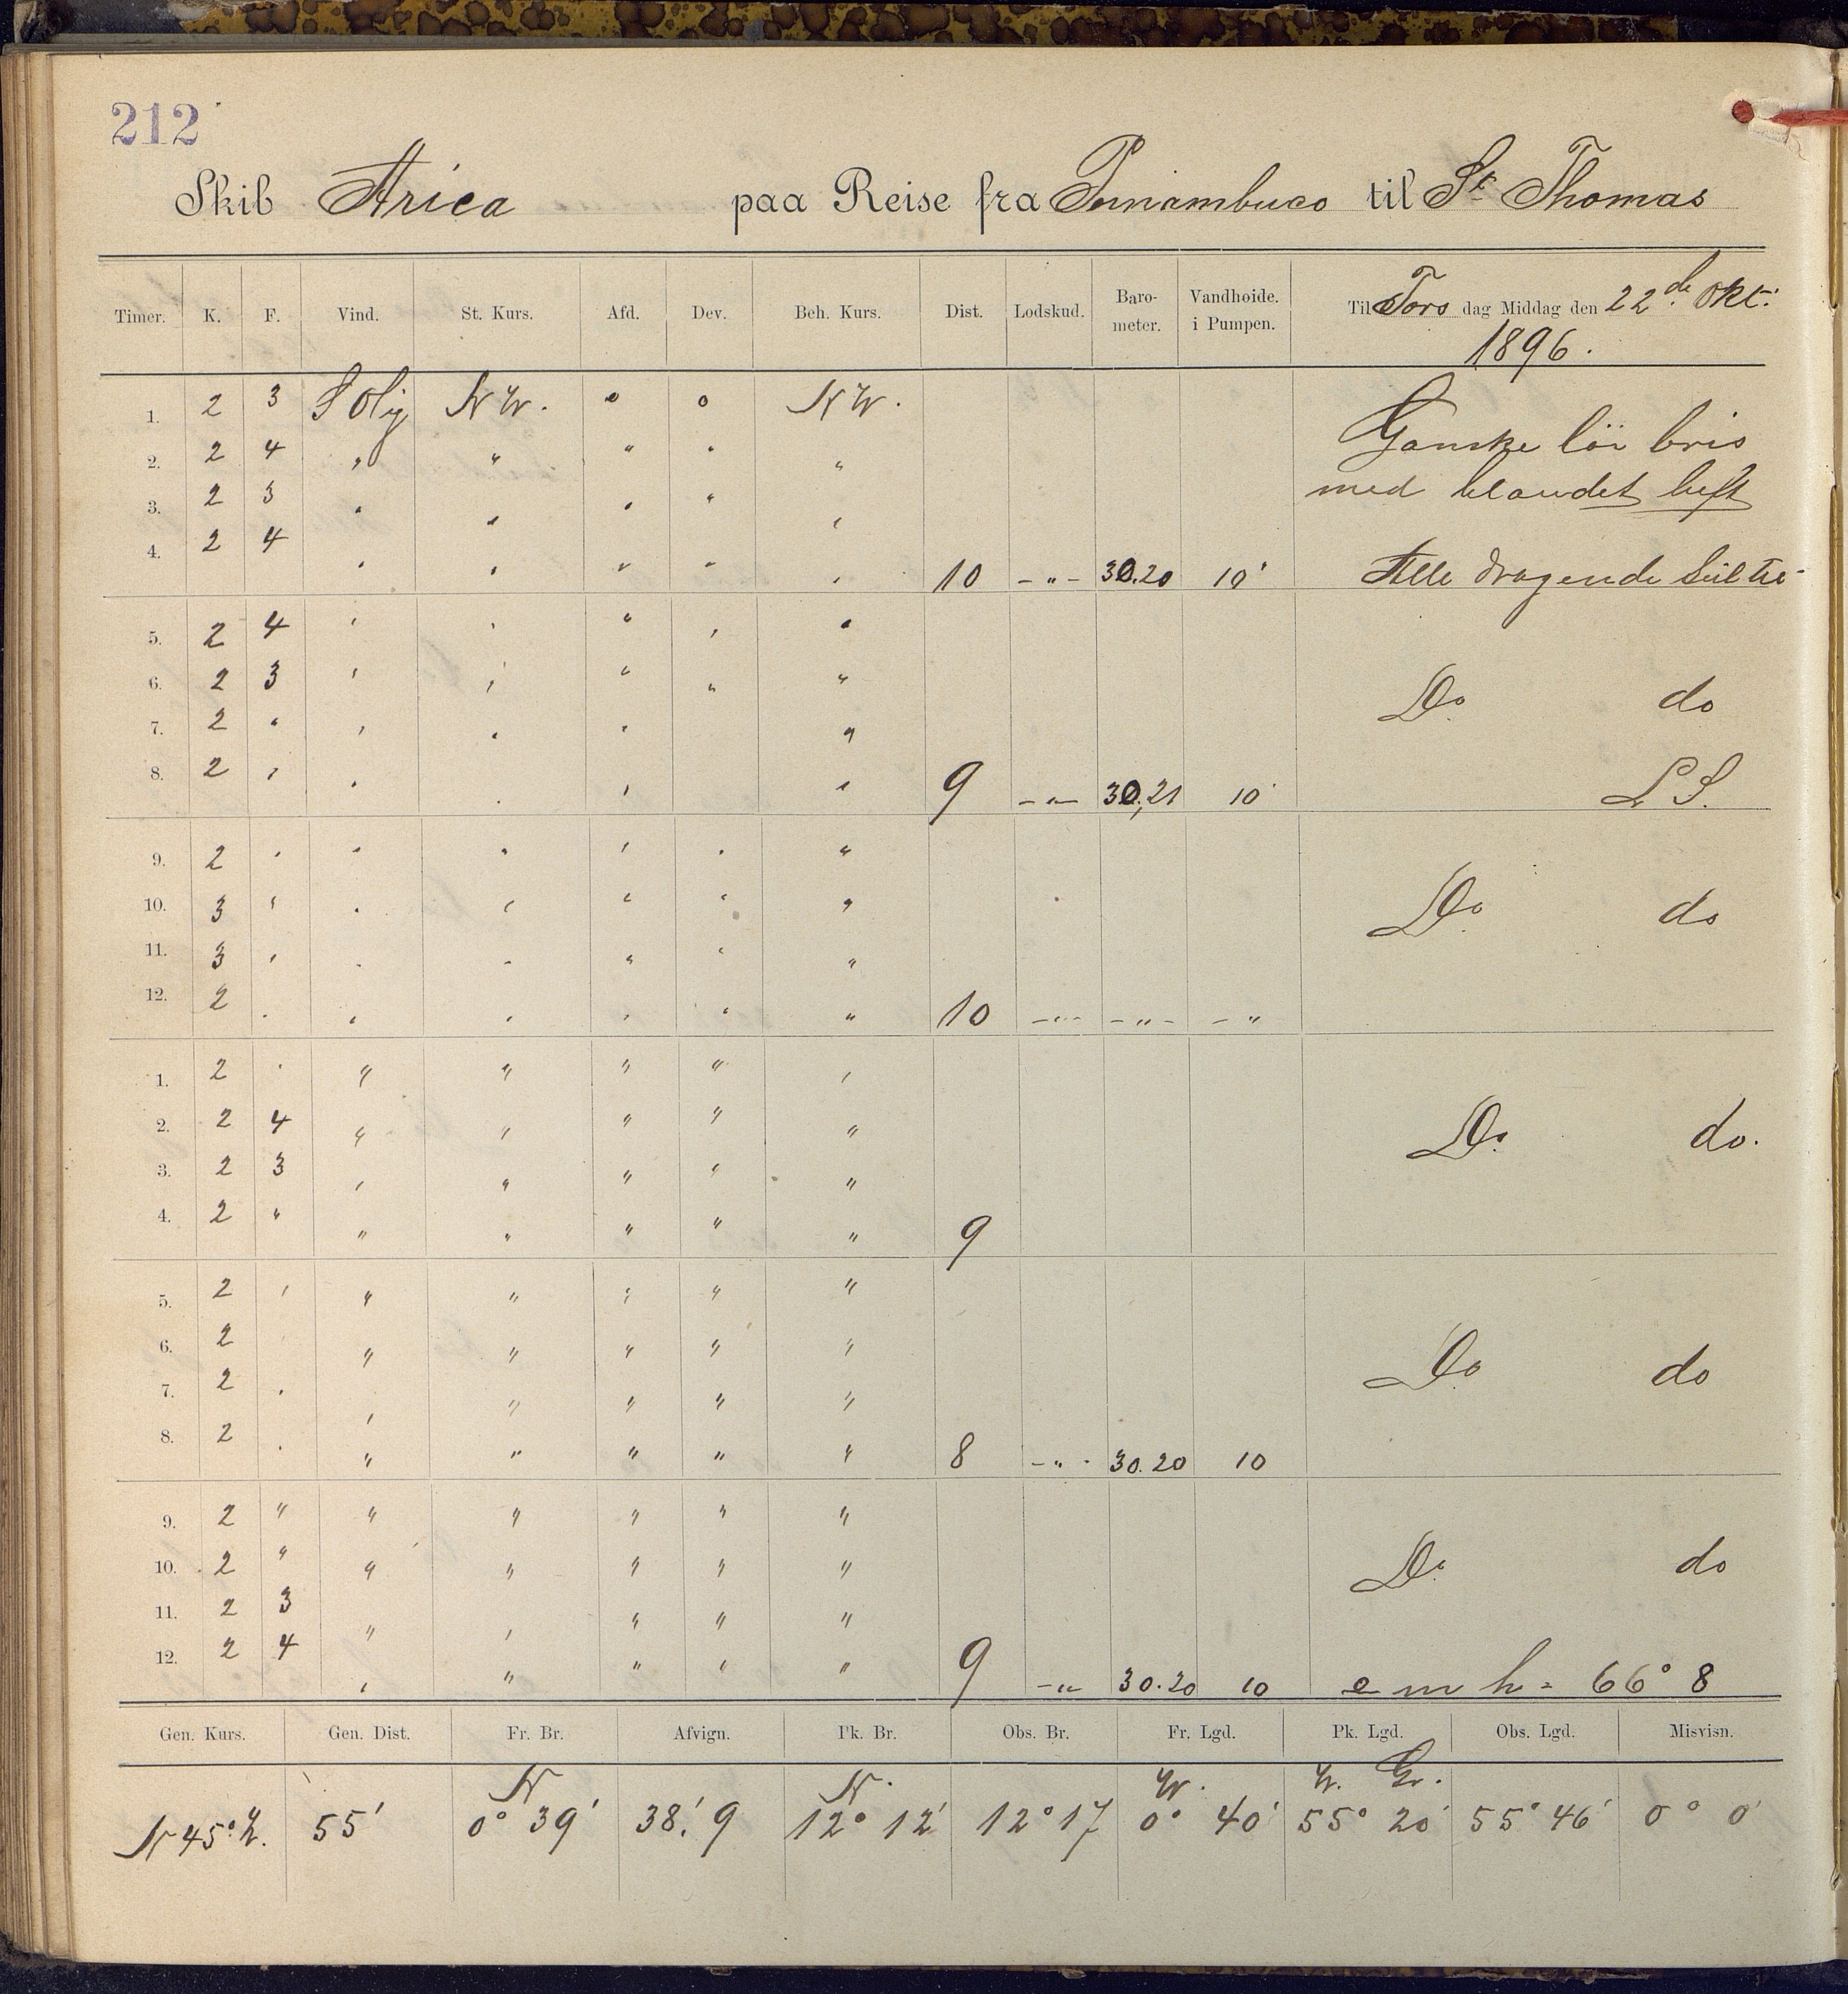 212
Skib Arica paa Reise fra Pernambuco til St Thomas
Timer. K. F. Vind. St. Kurs. Afd. Dev. Beh. Kurs. Dist. Lodskud. Baro-meter. Vandhoide. i Pumpen. Til Tors dag Middag den 22de Okt:
1896.
1. 2 3 S Olig NW. 0 0 NW.
Ganske lör bris
2. 2 4 " " " " "
med blandet luft
3. 2 3 " " " " "
4. 2 4 " " " " " 10 -"- 30.20 10' Alle dragende Seil til
5. 2 4 " " " " "
6. 2 3 " " " " " Do do
7. 2 " " " " "
8. 2 " " " " " 9 -"- 30,21 10' L S.
9. 2 " " " " " "
10. 3 " " " " " " Do do
11. 3 " " " " " "
12. 2 " " " " " " 10 -"- -"- -"
1. 2 " " " " " "
2. 2 4 " " " " " Do do.
3. 2 3 " " " " "
4. 2 " " " " " " 9
5. 2 " " " " " "
6. 2 " " " " " Do do
7. 2 " " " " " "
8. 2 " " " " " " 8 -"- 30.20 10
9. 2 " " " " " "
10. 2 " " " " " " Do do
11. 2 3 " " " " "
12. 2 4 " " " " " 9 -"- 30.20 10 o m h = 66° 8
Gen. Kurs. Gen. Dist. Fr. Br. Afvign. Pk. Br. Obs. Br. Fr. Lgd. Pk. Lgd. Obs. Lgd. Misvisn.
N N. W. W. Gr.
N 45° W. 55' 0° 39' 38,' 9 12° 12' 12° 17 0° 40' 55° 20' 55° 46' 0° 0'